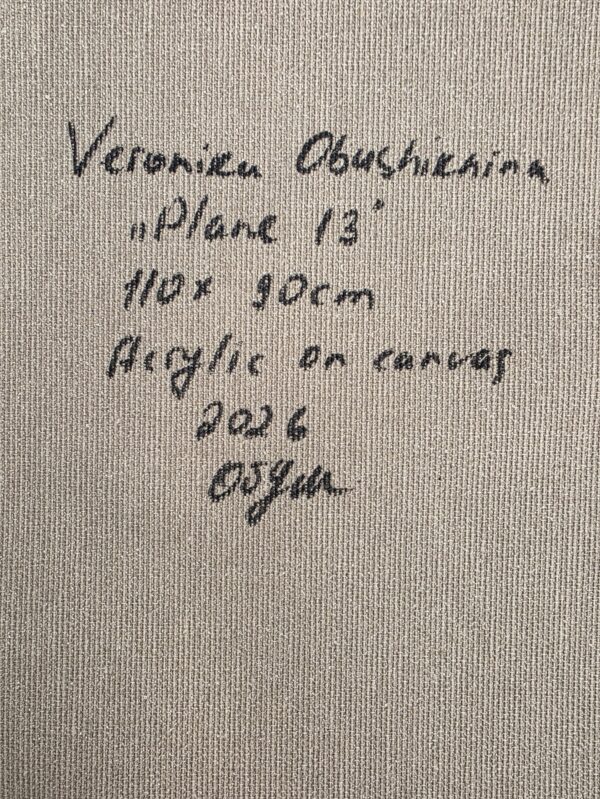 Veronika Obushirnina
„Plane 13"
110 x 90 cm
Acrylic on canvas
2026